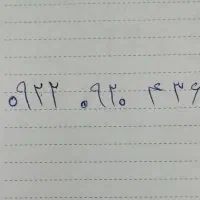 ۰۹۲۲ ۰۹۲۰ ۴۳۶